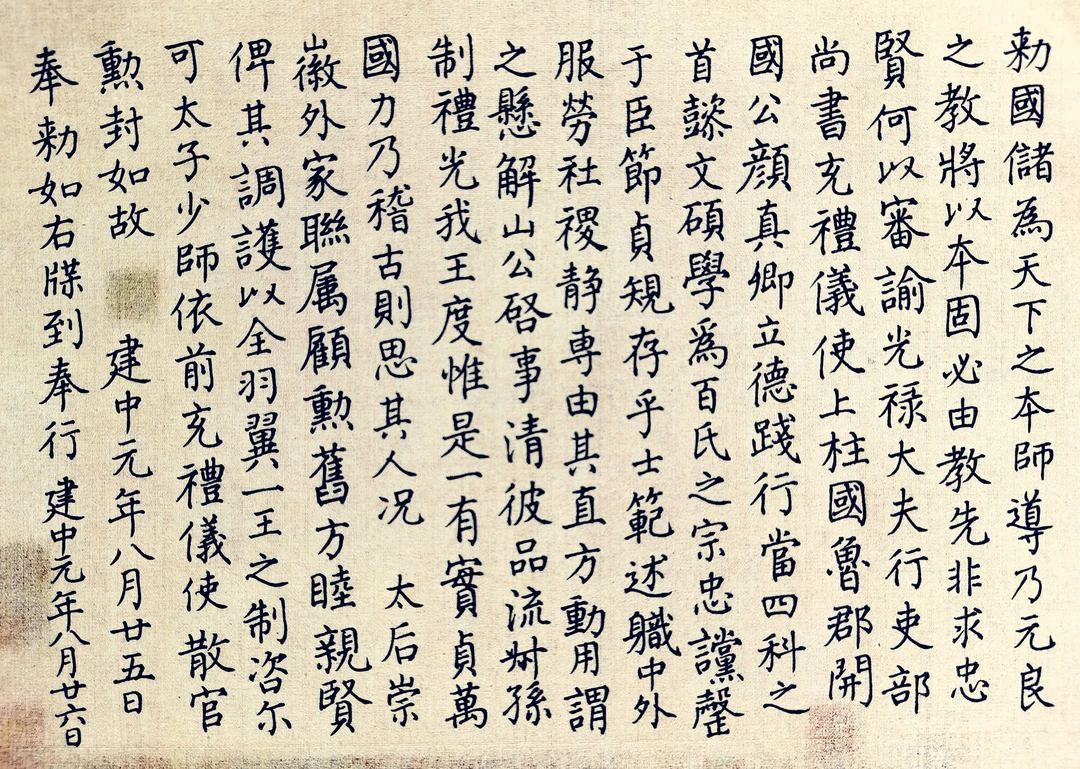 勅國儲為天下之本師導乃元良
之教將以本固必由教先非求忠
賢何以審諭光禄大夫行吏部
尚書充禮儀使上柱國魯郡開
國公顏真卿立德踐行當四科之
首懿文碩學爲百氏之宗忠讜罄
于臣節貞規存乎士範述職中外
服勞社稷静專由其直方動用謂
之懸解山公啓事清彼品流叔孫
制禮光我王度惟是一有實貞萬
國力乃稽古則思其人况 太后崇
徽外家聯属顧勳舊方睦親賢
俾其調護以全羽翼一王之制咨尓
可太子少師依前充禮儀使散官
勳封如故 建中元年八月廿五日
奉勅如右牒到奉行 建中元年八月廿六日